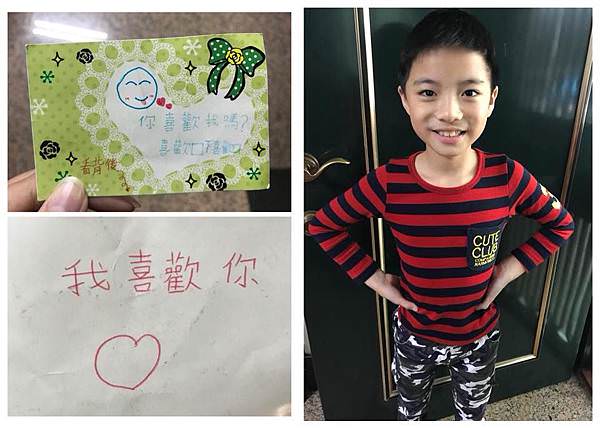 你喜歡我嗎?
喜歡□不喜歡□
看背後
我喜歡你
CUTE
CLUB